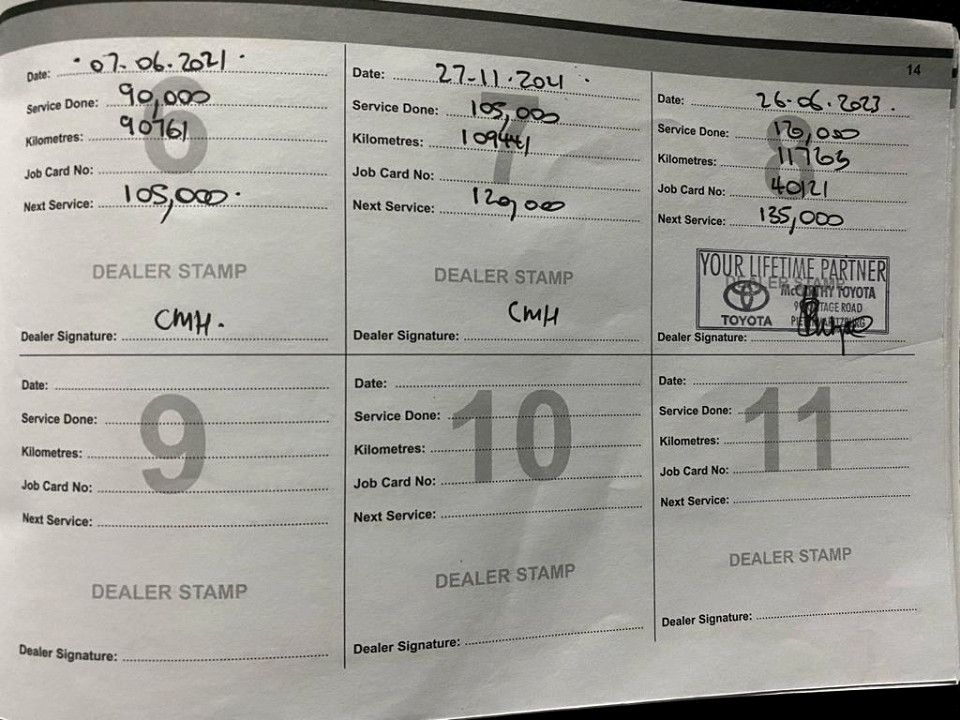 14
6
Date: 07-06-2021
Service Done: 90,000
Kilometres: 90761
Job Card No:
Next Service: 105,000
DEALER STAMP
Dealer Signature: CMH.
7
Date: 27-11-2021
Service Done: 105,000
Kilometres: 109441
Job Card No:
Next Service: 120,000
DEALER STAMP
Dealer Signature: CMH
8
Date: 26-06-2023.
Service Done: 120,000
Kilometres: 11763
Job Card No: 40121
Next Service: 135,000
DEALER STAMP
YOUR LIFETIME PARTNER
McCARTHY TOYOTA
ROAD
TOYOTA
Dealer Signature:
9
Date:
Service Done:
Kilometres:
Job Card No:
Next Service:
DEALER STAMP
Dealer Signature:
10
Date:
Service Done:
Kilometres:
Job Card No:
Next Service:
DEALER STAMP
Dealer Signature:
11
Date:
Service Done:
Kilometres:
Job Card No:
Next Service:
DEALER STAMP
Dealer Signature: